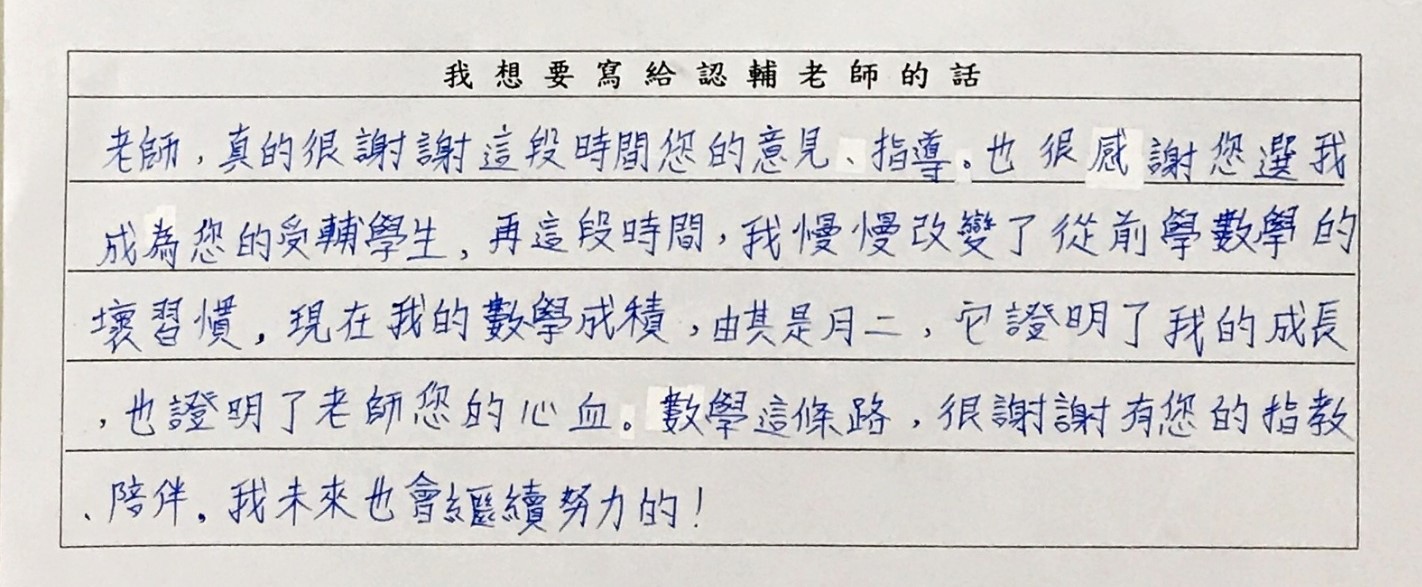 我想要寫給認輔老師的話
老師，真的很謝謝這段時間您的意見、指導。也很感謝您選我
成為您的受輔學生，再這段時間，我慢慢改變了從前學數學的
壞習慣，現在我的數學成積，由其是月二，它證明了我的成長
，也證明了老師您的心血。數學這條路，很謝謝有您的指教
、陪伴，我未來也會繼續努力的！